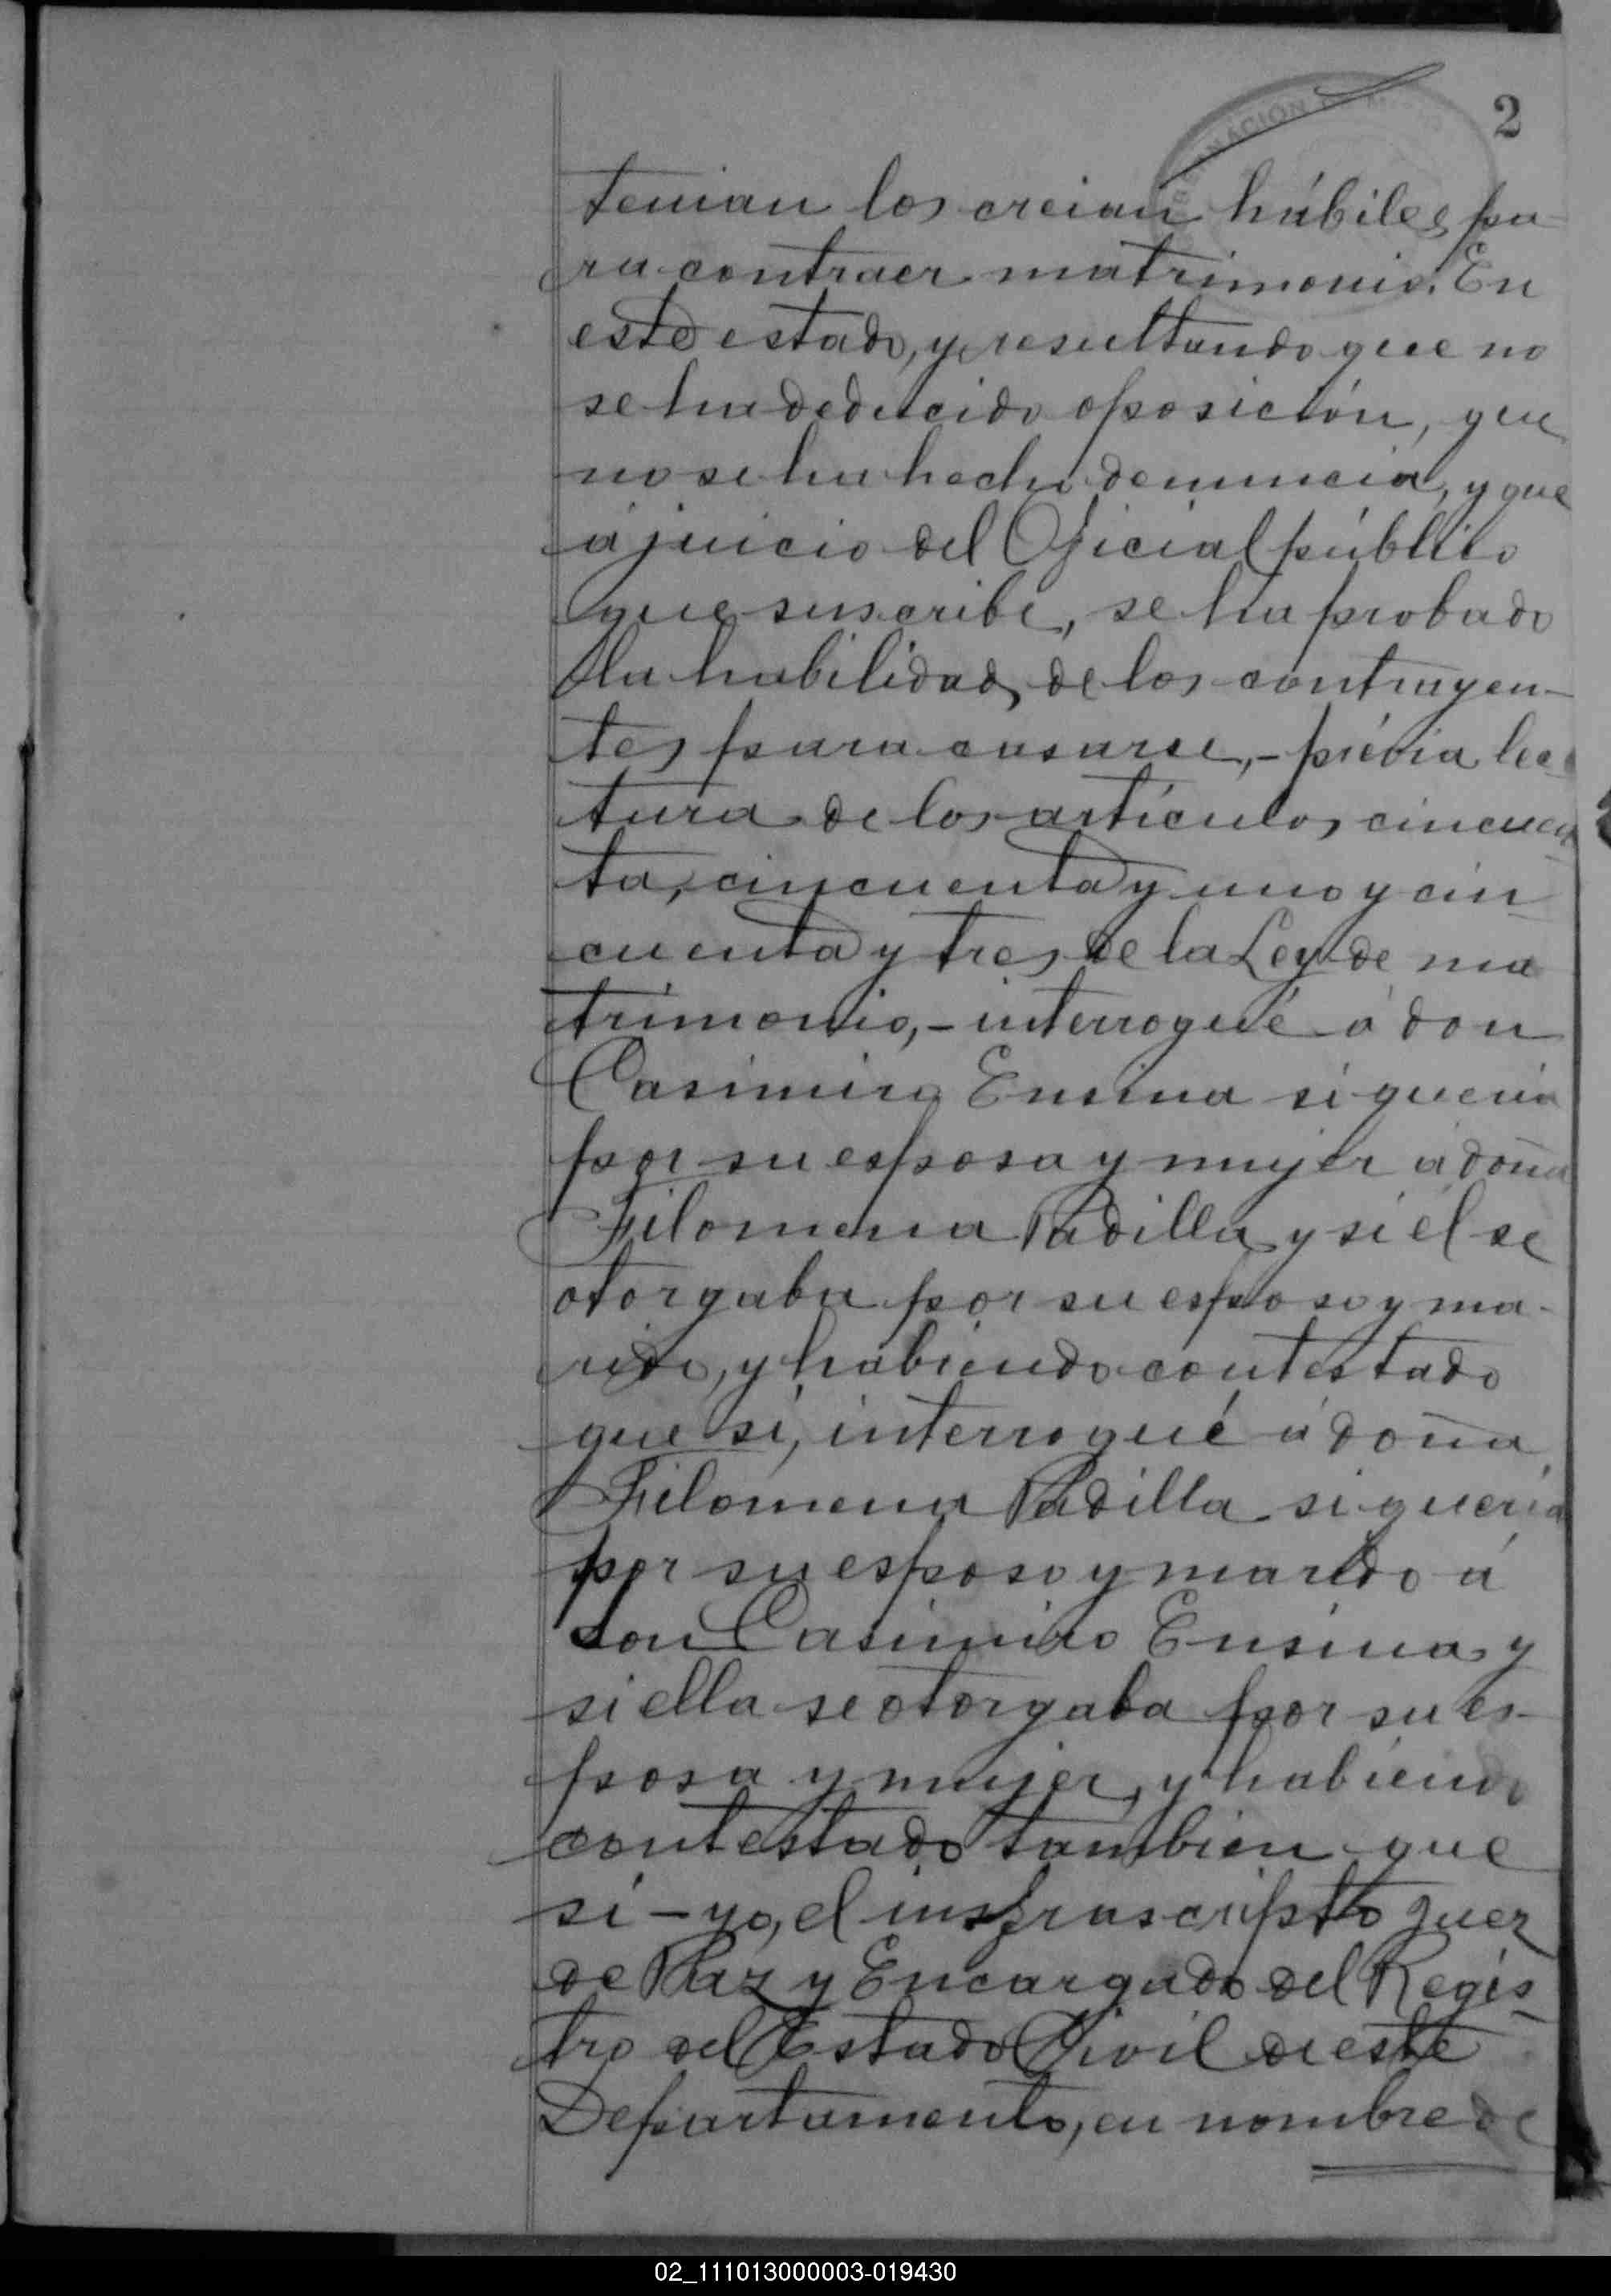 2
GOBERNACIÓN
tenian los creian hábiles pa-
ra contraer matrimonio. En
este estado, y resultando que no
se ha deducido oposición, que
no se ha hecho denuncia, y que
á juicio del Oficial público
que suscribe, se ha probado
la habilidad de los contrayen-
tes para casarse,- prévia lec-
tura de los artículos cincuen
ta, cincuenta y uno y cin
cuenta y tres de la Ley de ma
trimonio,- interrogué á don
Casimiro Ensina si queria
por su esposa y mujer á doña
Filomena Padilla y si él se
otorgaba por su esposo y ma-
rido, y habiendo contestado
que sí, interrogué á doña
Filomena Padilla si queria
por su esposo y marido á
don Casimiro Ensina y
si ella se otorgaba por su es-
posa y mujer, y habiendo
contestado tambien que
si - yo, el insfrascripto Juez
de Paz y Encargado del Regis-
tro del Estado Civil de este
Departamento, en nombre de
02_111013000003-019430